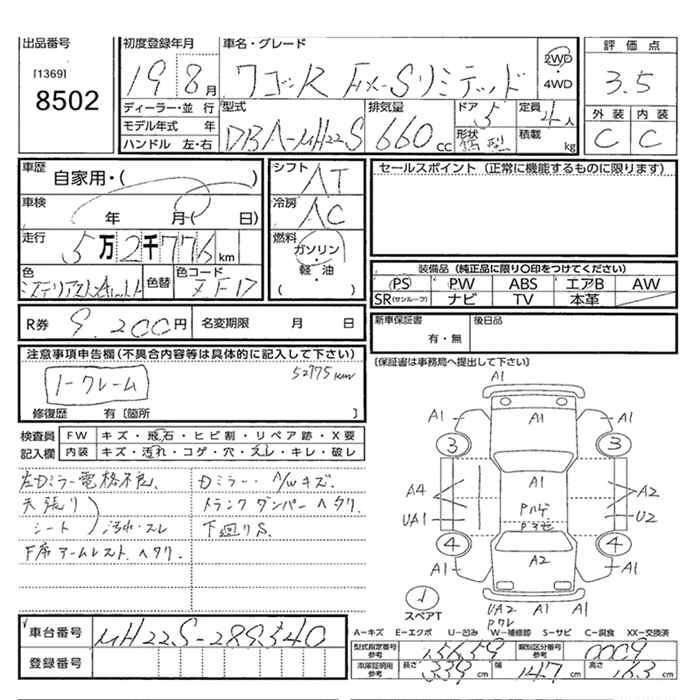 出品番号
[1369]
8502
初度登録年月
19 8月
車名・グレード
ワゴンR FX-Sリミテッド
2WD・4WD
評価点
3.5
外装 内装
C C
ディーラー・並行
モデル年式 年
ハンドル 左・右
型式
DBA-MH22S
排気量
660cc
ドア 5
形状 箱型
定員 4人
積載 kg
車歴
自家用・( )
車検
年 月( 日)
走行
5万2千776km
色
色替
色コード
ZF17
シフト
AT
冷房
AC
燃料
ガソリン・軽油
( )
セールスポイント (正常に機能するものに限ります)
装備品 (純正品に限り〇印をつけてください)
PS PW ABS エアB AW
SR(サンルーフ) ナビ TV 本革
R券 9,200円
名変期限 月 日
新車保証書
有・無
後日品
(保証書は事務局へ提出して下さい)
注意事項申告欄(不具合内容等は具体的に記入して下さい)
52775km
ノークレーム
修復歴 有〔箇所 〕
検査員記入欄
FW キズ・飛石・ヒビ割・リペア跡・X要
内装 キズ・汚れ・コゲ・穴・スレ・キレ・破レ
左Dミラー電格不良、
天張り
シート 汚れ・スレ
F席アームレスト ヘタリ.
Dミラー・A/Wキズ.
トランクダンパーヘタリ.
下廻りS.
A1
A1 A1 A1
3 3
A4 A1 A2
UA1 Pハゲ U2
4 4
A1 A2 A1
スペアT
UA2 A1 A1
Pワレ
A-キズ E-エクボ U-凹み W-補修跡 S-サビ C-腐食 XX-交換済
車台番号
MH22S-289340
登録番号
型式指定番号参考
15639
類別区分番号参考
0009
車庫証明用参考
長さ 339cm 幅 147cm 高さ 163cm